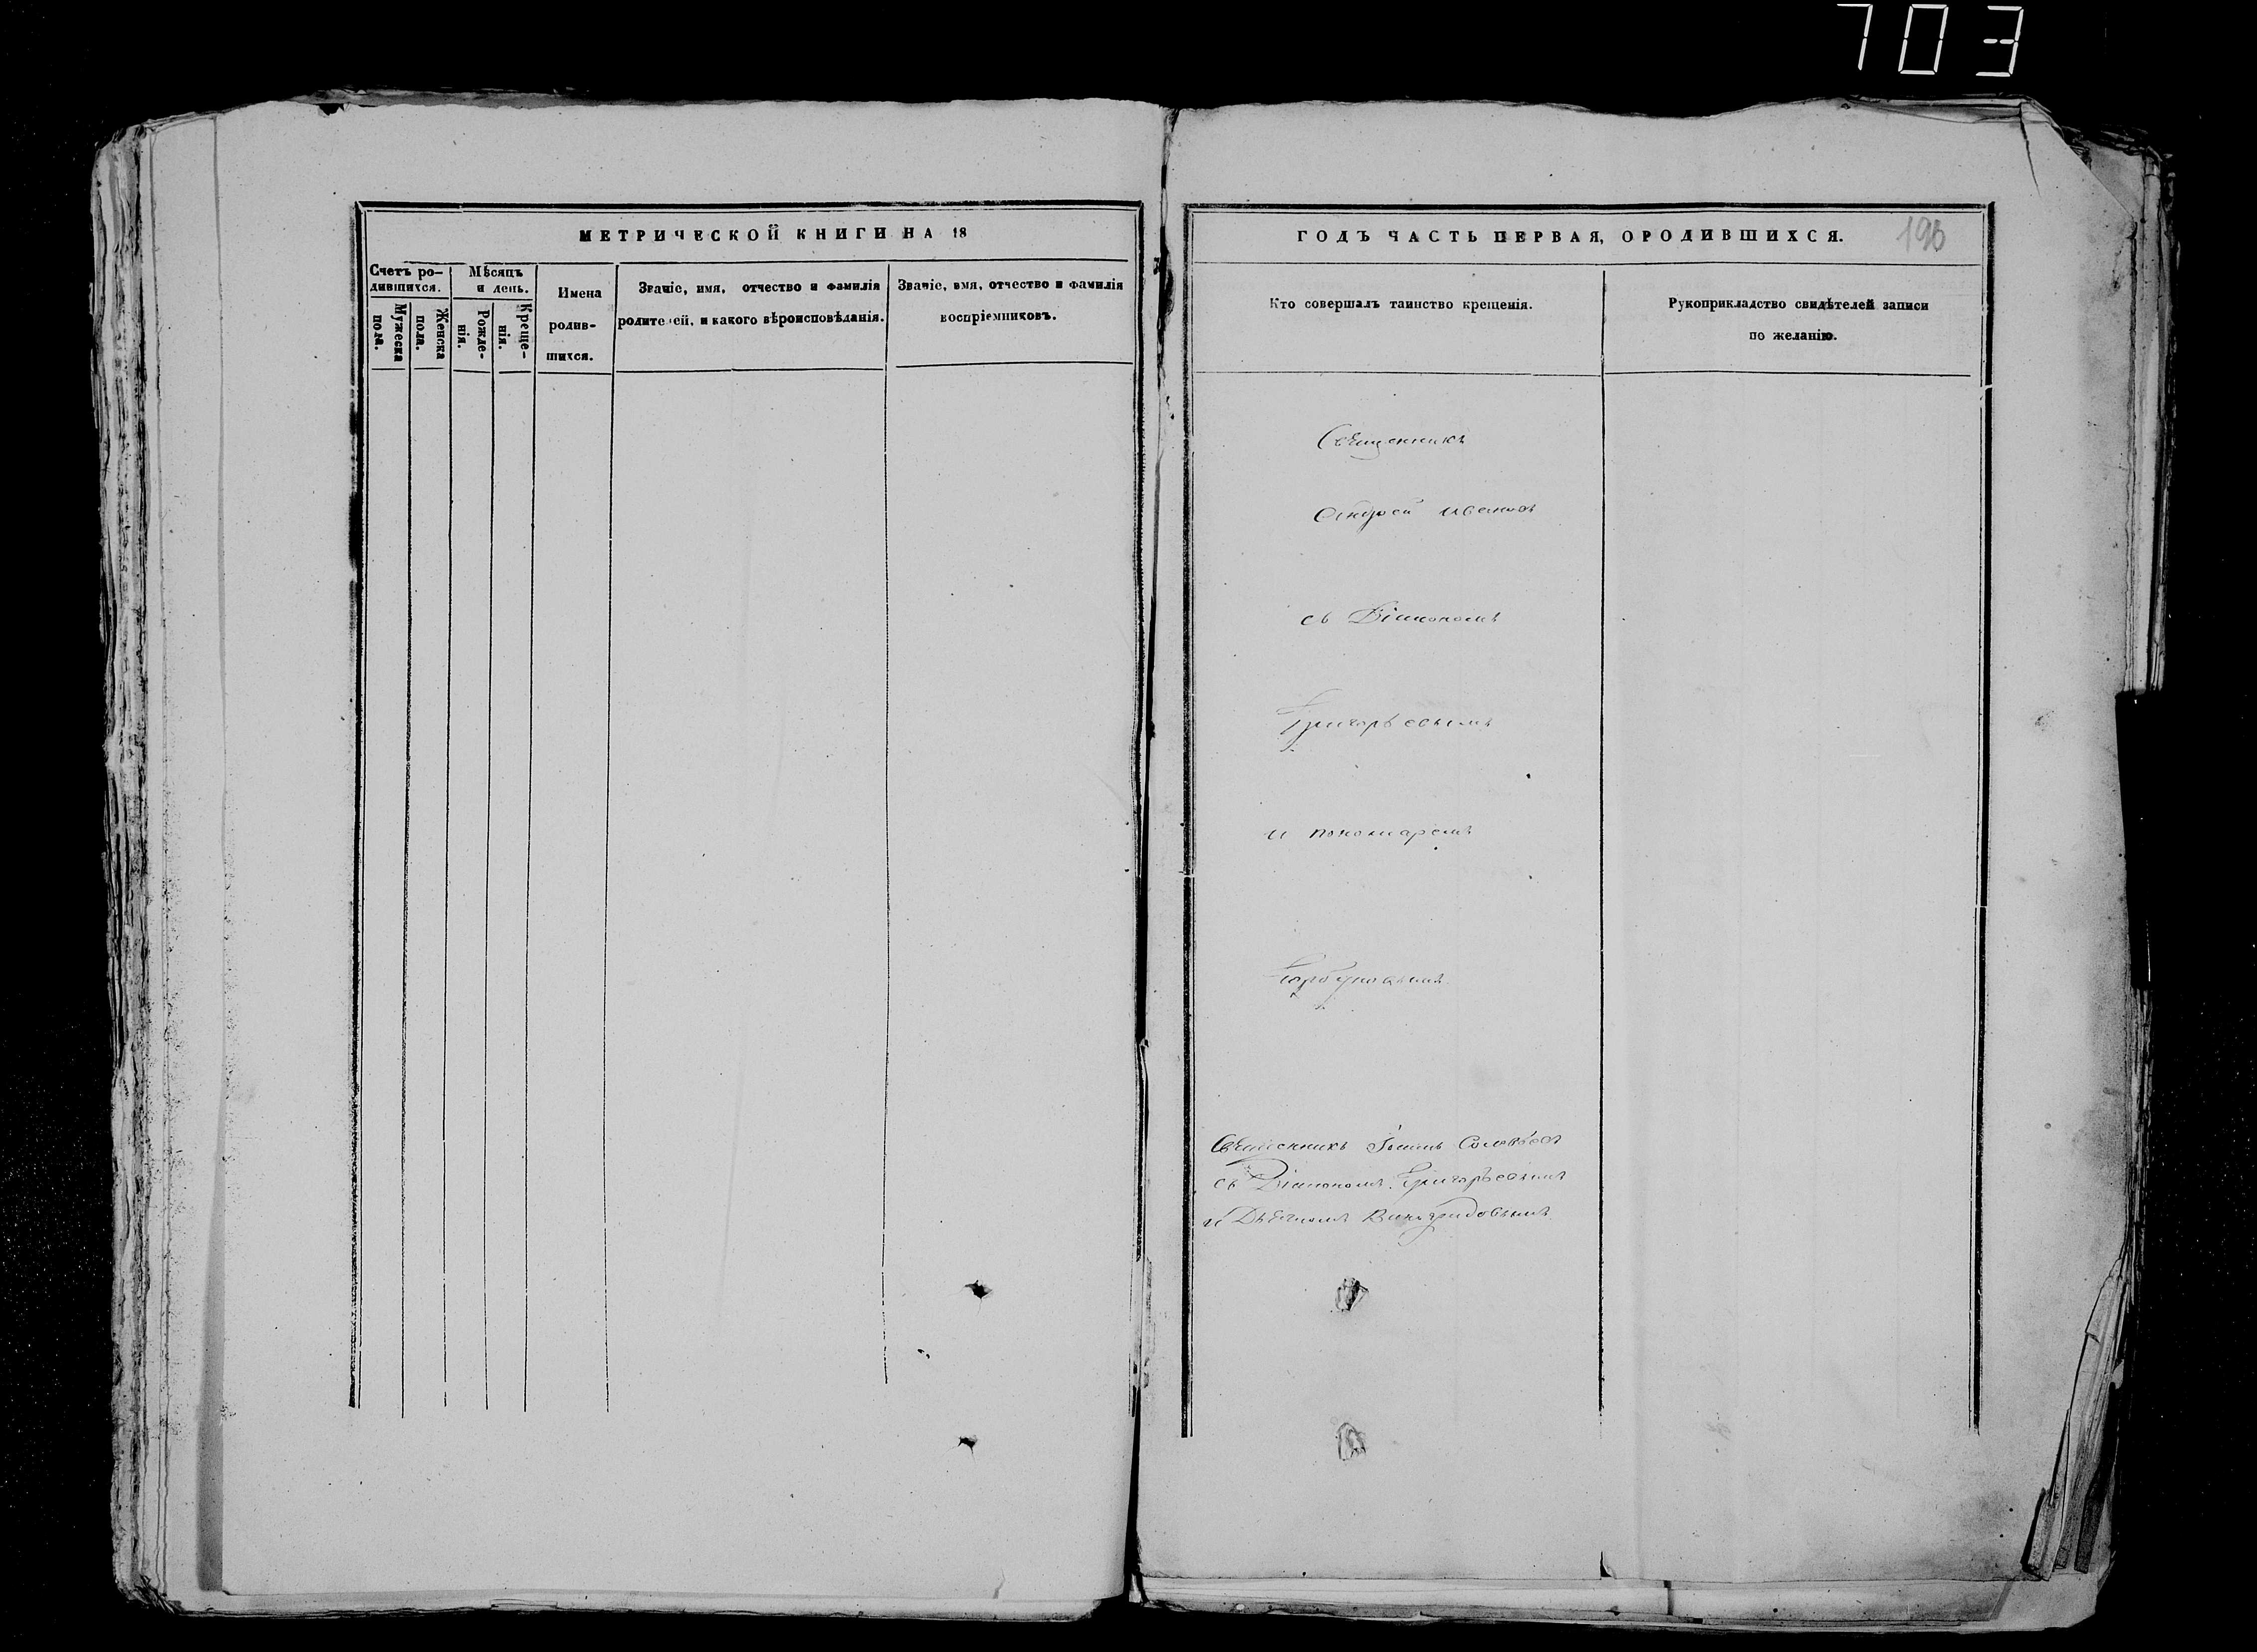 703
МЕТРИЧЕСКОЙ КНИГИ НА 18
Счетъ ро-
дившихся.
Мужеска
пола.
Женска
пола.
Мѣсяцъ
и день.
Рожде-
нія.
Креще-
нія.
Имена
родив-
шихся.
Званіе, имя, отчество и фамилія
родителей, и какого вѣроисповѣданія.
Званіе, имя, отчество и фамилія
воспріемниковъ.
ГОДЪ ЧАСТЬ ПЕРВАЯ, ОРОДИВШИХСЯ.
190
Кто совершалъ таинство крещенія.
Рукоприкладство свидѣтелей записи
по желанію.
Священникъ
Андрей Ивановъ
съ Діакономъ
Григорьевымъ
и пономаремъ
Горбуновымъ
Священникъ Іоаннъ Соловьевъ
съ Діакономъ Григорьевымъ
и Дьячкомъ Виноградовымъ